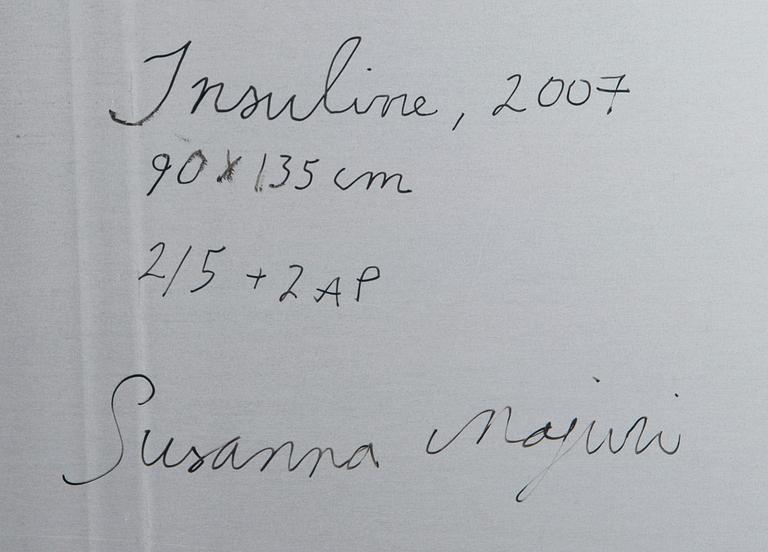 Insuline, 2007
90 x 135 cm
2/5 + 2 AP
Susanna Majuri